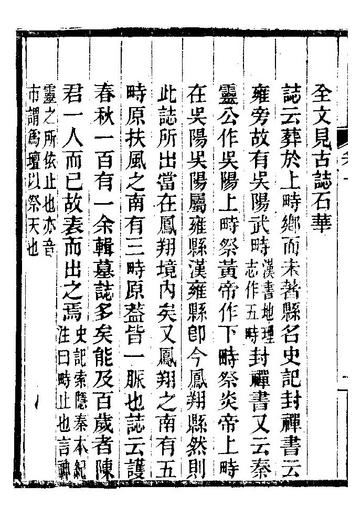 全文見古誌石華
誌云葬於上畤鄉而未著縣名史記封禪書云
雍旁故有吳陽武畤漢書地理志作五畤封禪書又云秦
靈公作吳陽上畤祭黃帝作下畤祭炎帝上畤
在吳陽吳陽屬雍縣漢雍縣卽今鳳翔縣然則
此誌所出當在鳳翔境內矣又鳳翔之南有五
畤原扶風之南有三畤原葢皆一脈也誌云護
春秋一百有一余輯墓誌多矣能及百歲者陳
君一人而已故表而出之焉史記索隱秦本紀注曰畤止也言神
靈之所依止也亦音市謂爲壇以祭天也